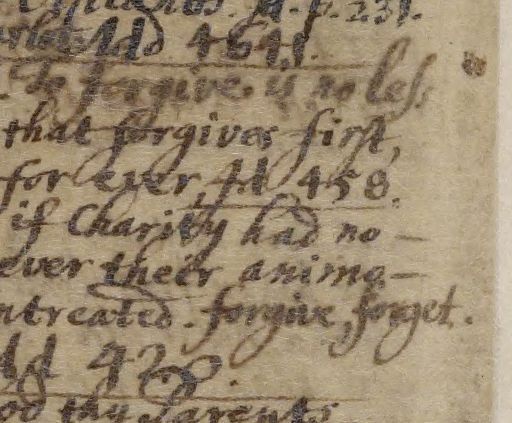 . p. 231.
Id 464.
To forgive, is no less
that forgives first,
for ever, Id 458.
if Charity had no-
ever their animo-
ntreated. forgive, forget.
Id 428.
od thy Parents